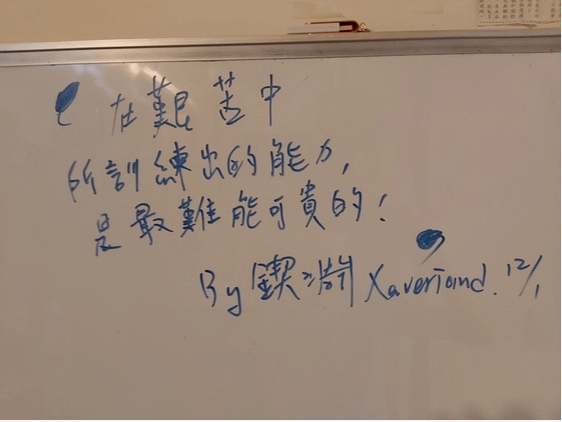 在艱苦中
所訓練出的能力,
是最難能可貴的!
By 鍥淵 Xaveriond. 12/1